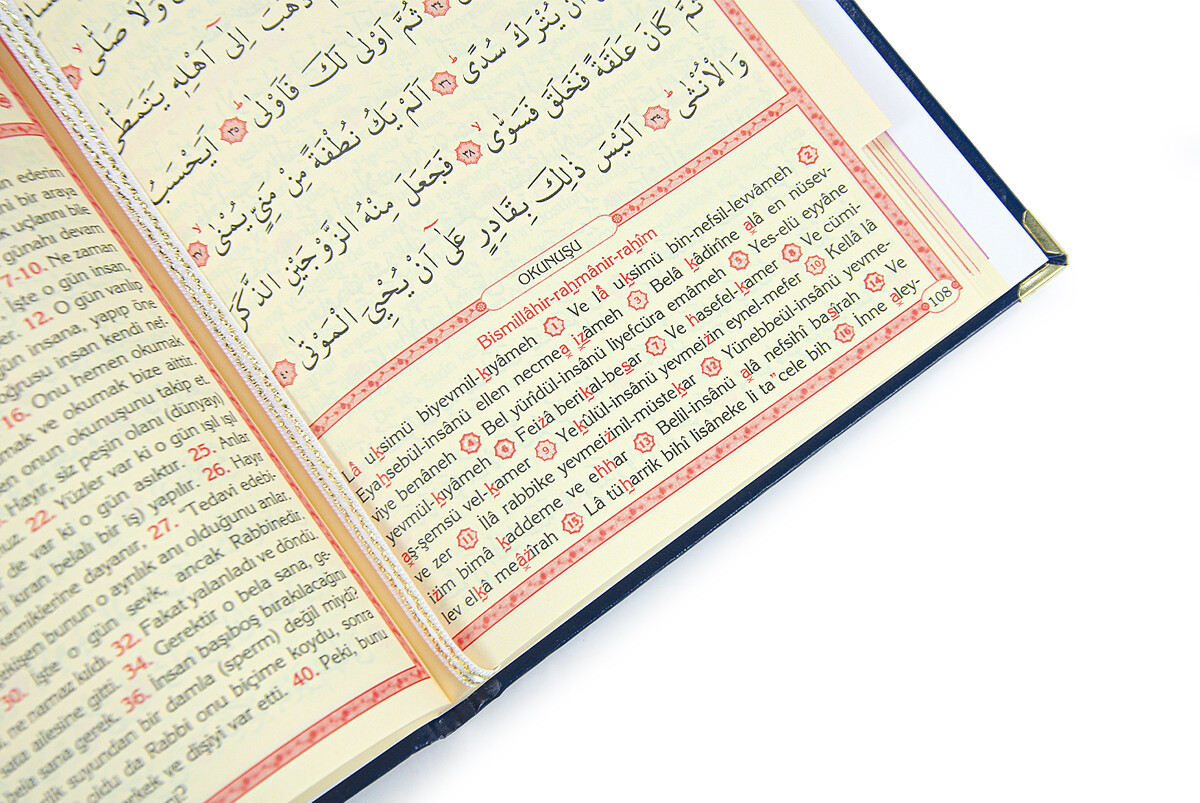 وَلَا صَلّٰىۙ
ذَهَبَ اِلٰٓى اَهْلِه۪ يَتَمَطّٰىۜ
٣٤ ثُمَّ اَوْلٰى لَكَ فَاَوْلٰىۜ ٣٥ اَيَحْسَبُ
اَنْ يُتْرَكَ سُدًىۜ ٣٦ اَلَمْ يَكُ نُطْفَةً مِنْ مَنِيٍّ يُمْنٰىۙ ٣٧
ثُمَّ كَانَ عَلَقَةً فَخَلَقَ فَسَوّٰىۙ ٣٨ فَجَعَلَ مِنْهُ الزَّوْجَيْنِ الذَّكَرَ
وَالْاُنْثٰىۜ ٣٩ اَلَيْسَ ذٰلِكَ بِقَادِرٍ عَلٰٓى اَنْ يُحْيِيَ الْمَوْتٰى ٤٠
OKUNUŞU
Bismillâhir-raḥmânir-raḥîm
Lâ uksimü biyevmil-kıyâmeh 1 Ve lâ uksimü bin-nefsil-levvâmeh 2
Eyahsebül-insânü ellen necmea izâmeh 3 Belâ kâdirîne alâ en nüsev-
viye benâneh 4 Bel yürîdül-insânü liyefcüra emâmeh 5 Yes-elü eyyâne
yevmül-kıyâmeh 6 Feizâ berikal-besar 7 Ve hasefel-kamer 8 Ve cümi-
aş-şemsü vel-kamer 9 Yekûlül-insânü yevmeizin eynel-mefer 10 Kellâ lâ
ve zer 11 İlâ rabbike yevmeizinil-müstekar 12 Yünebbeül-insânü yevme-
izim bimâ kaddeme ve ehhar 13 Belil-insânü alâ nefsihî basîrah 14 Ve
lev elkâ meâzîrah 15 Lâ tüharrik bihî lisâneke li ta"cele bih 16 İnne aley-
108
ederim
ni bir araya
k uçlarını bile
günahı devam
7-10. Ne zaman
İşte o gün insan,
12. O gün varılıp
gün insana, yapıp öne
oğrusu insan kendi nef-
16. Onu hemen okumak
mak ve okumak bize aittir.
en onun okunuşunu takip et.
Hayır, siz peşin olanı (dünyayı)
22. Yüzler var ki o gün ışıl ışıl
de var ki o gün asıktır. 25. Anlar
kıran belalı bir iş) yapılır. 26. Hayır
kemiklerine dayanır, 27. "Tedavi edebi-
etkişen bunun o ayrılık anı olduğunu anlar.
30. İşte o gün sevk, ancak Rabbinedir.
ne namaz kıldı. 32. Fakat yalanladı ve döndü.
ailesine gitti. 34. Gerektir o bela sana, ge-
bela sana gerek. 36. İnsan başıboş bırakılacağını
suyundan bir damla (sperm) değil miydi?
oldu da Rabbi onu biçime koydu, sonra
erkek ve dişiyi var etti. 40. Peki, bunu